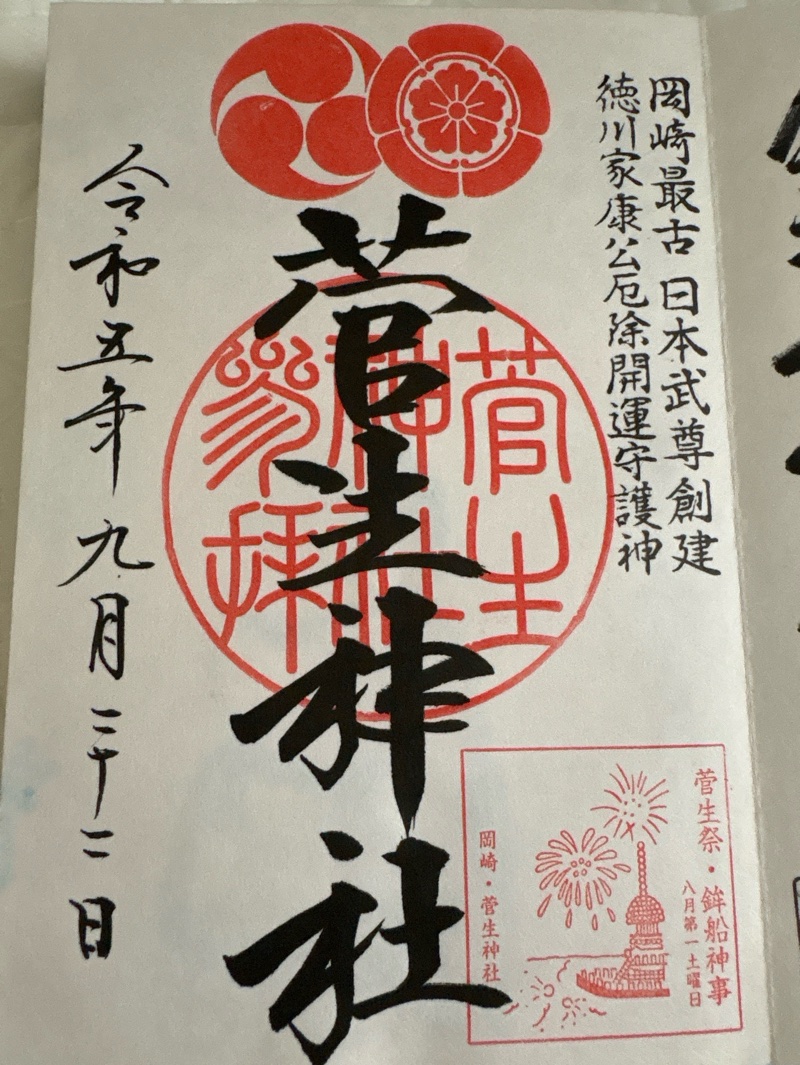 岡崎最古 日本武尊創建
徳川家康公厄除開運守護神
菅生神社
菅生
神社
参拝
令和五年九月二十二日
菅生祭・鉾船神事
八月第一土曜日
岡崎・菅生神社